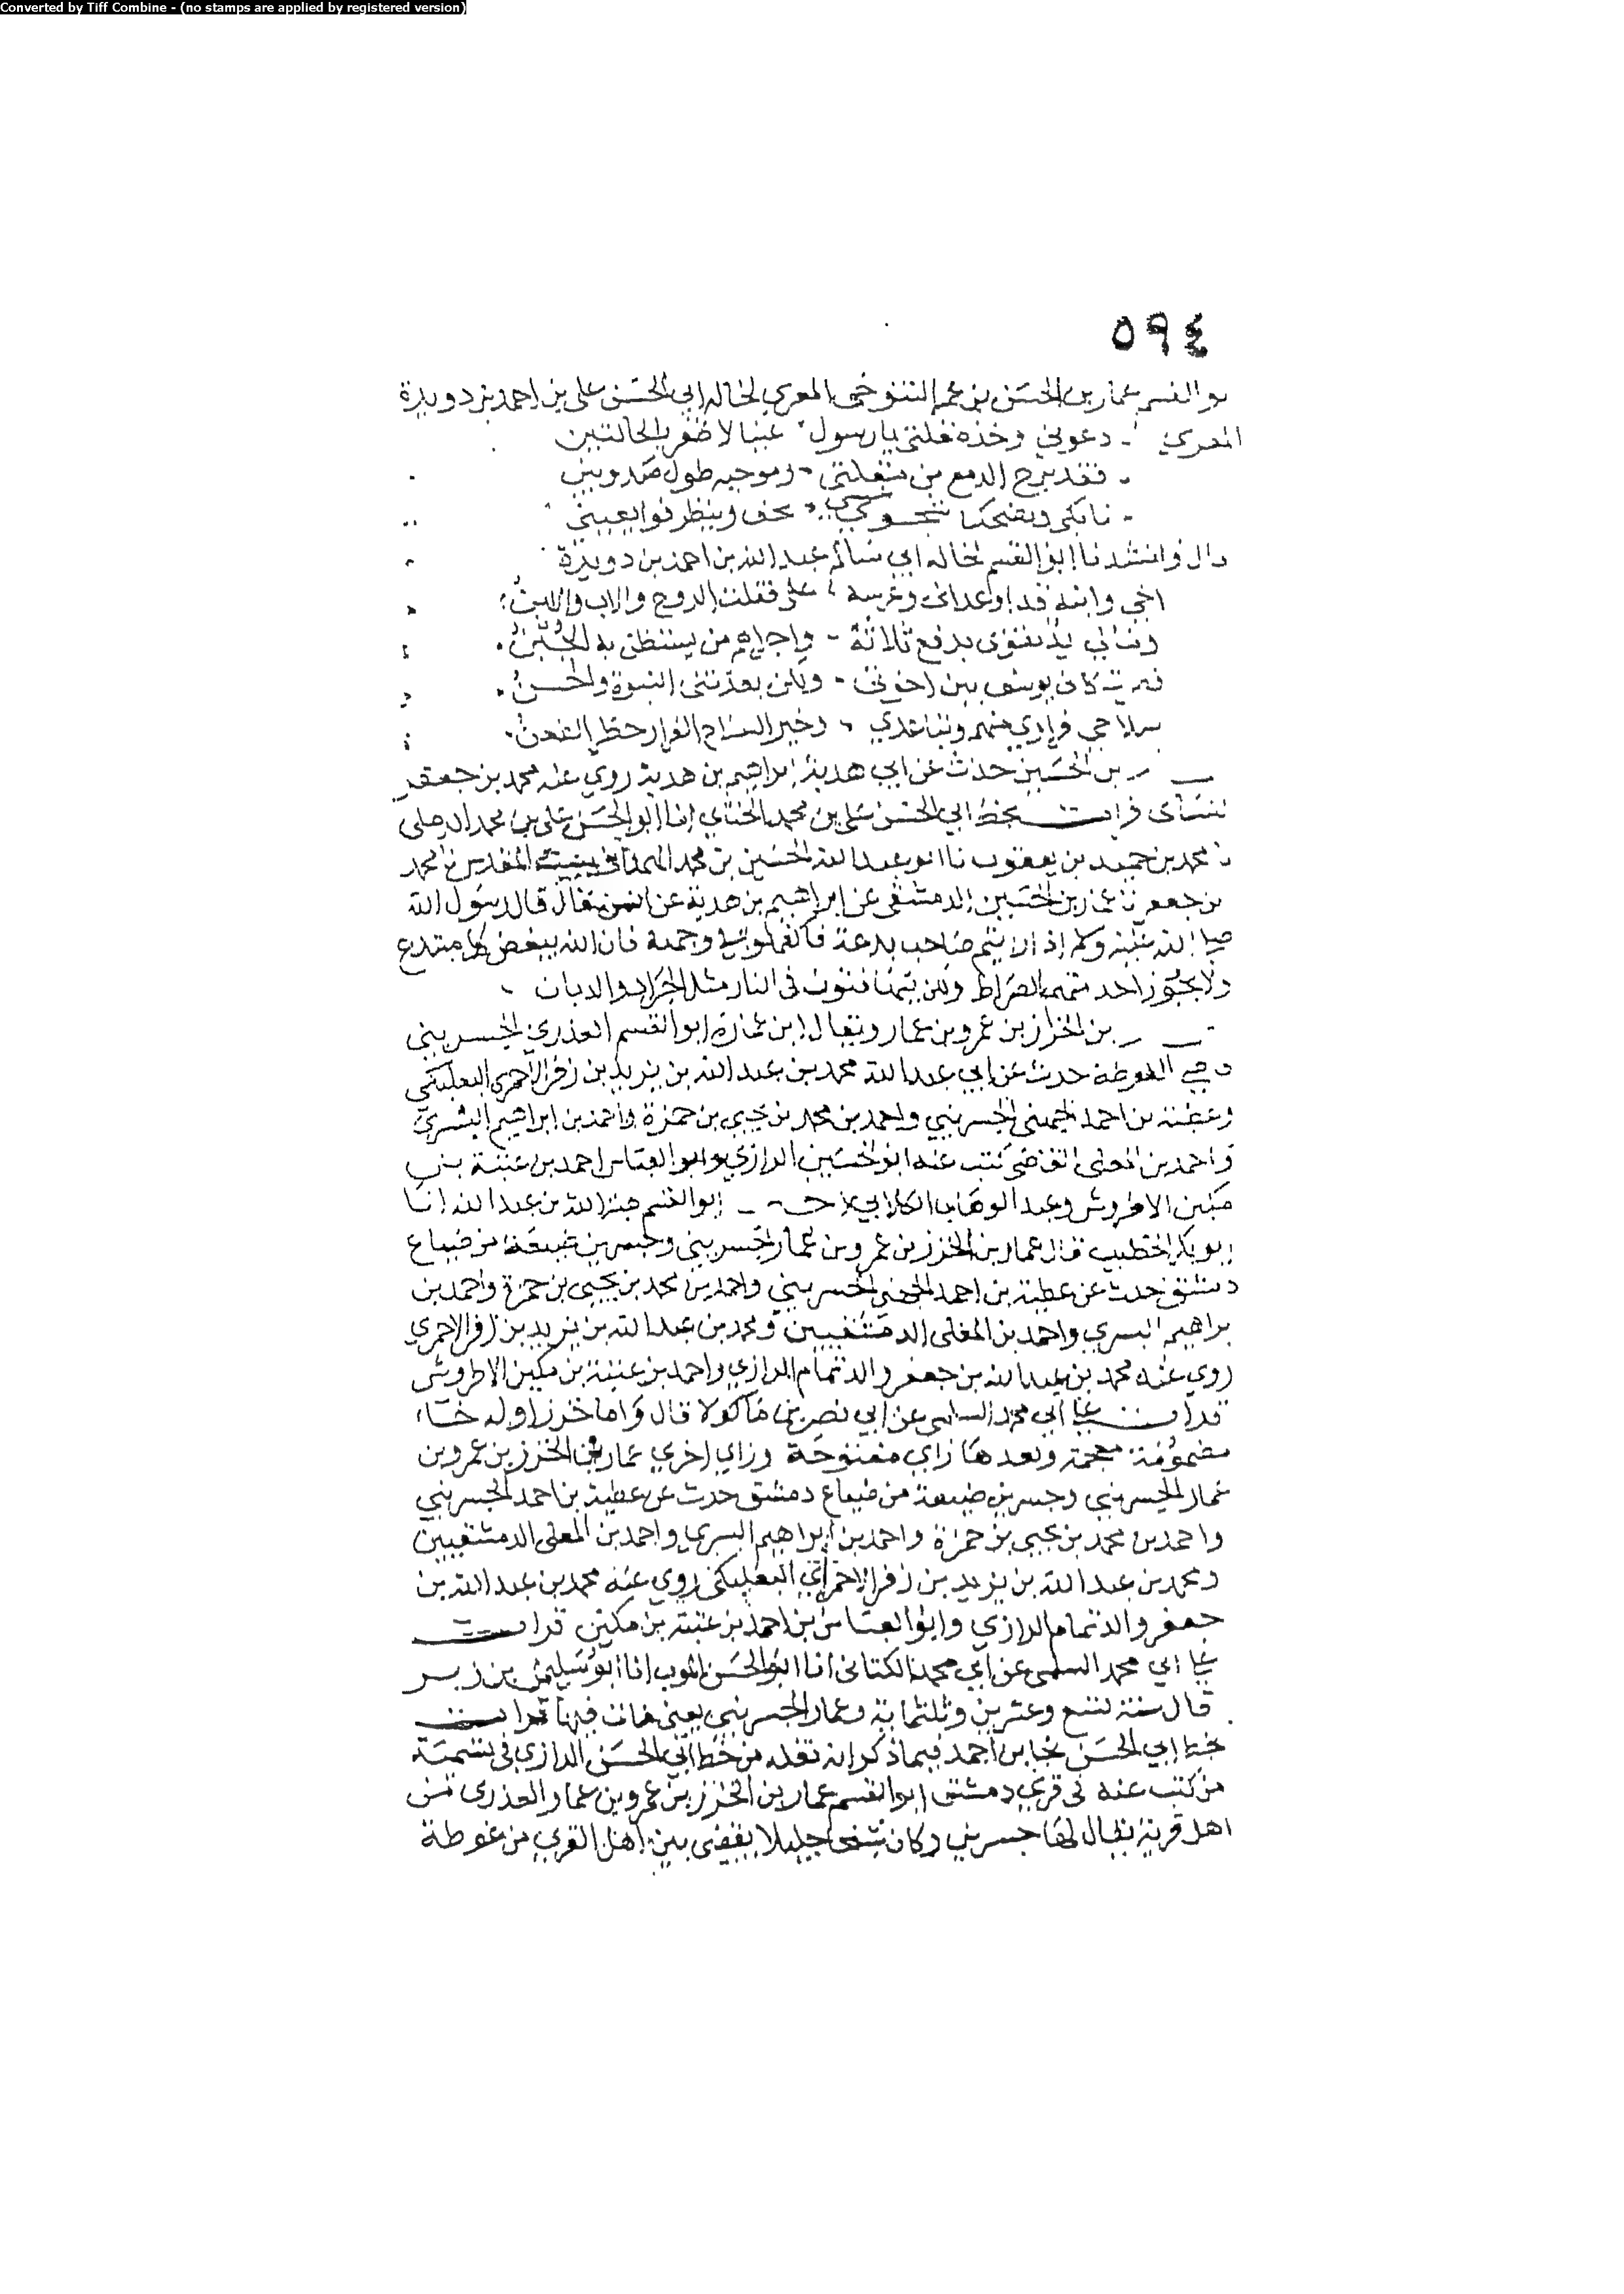 Converted by Tiff Combine - (no stamps are applied by registered version)
٥٩٤
بو القسم عمار بن الحسن بن عمر التنوخي المعري لخاله ابي الحسن علي بن احمد بن دويدة
المعري دعوني وخذه
فقد الدمع من وموجبه طول صد وبين
وينظر
وانشدنا ابو القسم لخاله ابي سالم عبد الله بن احمد بن دويدة
اخي وابنه علي فقلت الروح والاب والابن
يدفع ثلاثة من به الجبن
كان يوسف بين اخوتي ولكن النبوة والحسن
سلاحي فراري منهم وتباعدي وخير السلاح الفرار
بن الحسين حدث عن ابي هدبة ابراهيم بن هدبة روي عنه محمد بن جعفر
بخط ابي الحسن علي بن محمد الحنائي انا ابو الحسن علي بن محمد
نا محمد بن حميد بن يعقوب نا ابو عبد الله الحسين بن محمد ببيت المقدس نا محمد
بن جعفر نا عمار بن الحسين الدمشقي عن ابراهيم بن هدبة عن انس قال قال رسول الله
صلي الله عليه وسلم اذا رايتم صاحب بدعة فاكفهروا في وجهه فان الله يبغض كل مبتدع
ولا يجوز احد منهم الصراط ولكن يتهافتون في النار مثل الجراد والذبان
بن الخزز بن عمرو بن عمار ويقال ابن عمارة ابو القسم العذري الجسريني
الغوطة حدث عن ابي عبد الله محمد بن عبد الله بن يزيد بن زفر الاحمري البعلبكي
وعطية بن احمد الجهني الجسريني واحمد بن محمد بن يحيي بن حمزة واحمد بن ابراهيم البسري
واحمد بن المعلى القاضي كتب عنه ابو الحسين الرازي وابو العباس احمد بن عتبة بن
مكين الاطروش وعبد الوهاب الكلابي ابو القسم هبة الله بن عبد الله انا
ابو بكر الخطيب قال عمار بن الخزز بن عمرو بن عمار الجسريني وجسرين ضيعة من ضياع
دمشق حدث عن عطية بن احمد الجهني الجسريني واحمد بن محمد بن يحيى بن حمزة واحمد بن
براهيم البسري واحمد بن المعلى الدمشقيين ومحمد بن عبد الله بن يزيد بن زفر الاحمري
روي عنه محمد بن عبد الله بن جعفر والد تمام الرازي واحمد بن عتبة بن مكين الاطروش
قرات علي ابي محمد السلمي عن ابي نصر بن ماكولا قال واما خزز اوله خاء
مضمومة معجمة وبعدها زاي مفتوحة وزاي اخري عمار بن الخزز بن عمرو بن
عمار الجسريني وجسرين ضيعة من ضياع دمشق حدث عن عطية بن احمد الجسريني
واحمد بن محمد بن يحيي بن حمزة واحمد بن ابراهيم البسري واحمد بن المعلى الدمشقيين
ومحمد بن عبد الله بن يزيد بن زفر البعلبكي روي عنه محمد بن عبد الله بن
جعفر والد تمام الرازي وابو العباس بن احمد بن عتبة بن مكين قرات
علي ابي محمد السلمي عن ابي محمد الكتاني انا ابو الحسن انا ابو سليمن بن زبر
قال سنة تسع وعشرين وثلثماية وعمار الجسريني يعني مات فيها قرات
بخط ابي الحسن نجا بن احمد فيما ذكر انه نقله من خط ابي الحسن الرازي في تسمية
من كتب عنه في قري دمشق ابو القسم عمار بن الخزز بن عمرو بن عمار العذري من
اهل قرية يقال لها جسرين وكان شيخا جليلا يقضي بين اهل القري من غوطة